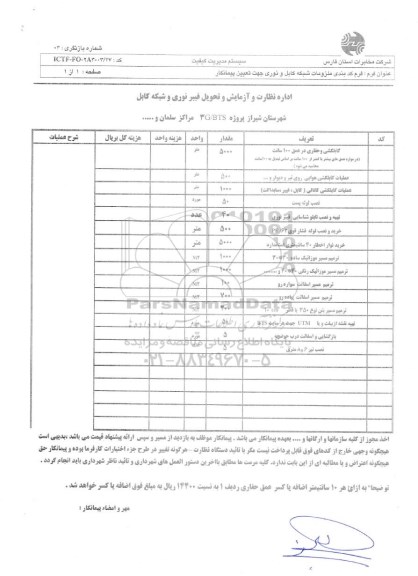 شماره بازنگری : ۰۲
شرکت مخابرات استان فارس
سیستم مدیریت کیفیت
کد : ICTF-FO-
عنوان فرم : فرم کد بندی ملزومات شبکه کابل و نوری جهت تعیین پیمانکار
صفحه : ۱ از ۱
اداره نظارت و آزمایش و تحویل فیبر نوری و شبکه کابل
شهرستان شیراز پروژه ۳G/BTS مراکز سلمان و ......
کد تعریف مقدار واحد هزینه واحد هزینه کل بریال شرح عملیات
کانالکشی و حفاری در عمق ۱۰۰ سانت ۵۰۰۰ متر
عملیات کابلکشی هوایی ۵۰۰ متر
عملیات کابلکشی کانالی ( کابل ، فیبر ) ۱۰۰۰ متر
نصب لوله پست ۵۰
تهیه و نصب تابلو شناسایی فیبر نوری ۴۰ عدد
خرید و نصب لوله فشار قوی ۵۰۰ متر
خرید نوار اخطار ۳۰ سانتیمتری ۵۰۰۰ متر
ترمیم مسیر موزائیک ساده ۳۰*۳۰ ۱۰۰۰
ترمیم مسیر موزائیک رنگی ۱۰۰۰
ترمیم مسیر اسفالت سواره رو ۱۰۰
ترمیم مسیر اسفالت پیاده رو ۷۰۰
ترمیم مسیر بتن نوع ۲۵۰
تهیه نقشه ازبیلت و UTM
بازگشایی و اسفالت درب حوضچه ۵
ParsNamadData
پایگاه اطلاع رسانی مناقصه و مزایده
۰۲۱-۸۸۳۴۹۶۷۰-۵
اخذ مجوز از کلیه سازمانها و ارگانها و ..... بعهده پیمانکار می باشد . پیمانکار موظف به بازدید از مسیر و سپس ارائه پیشنهاد قیمت می باشد .بدیهی است
هیچگونه وجهی خارج از کدهای فوق قابل پرداخت نیست مگر با تائید دستگاه نظارت – هرگونه تغییر در طرح جزء اختیارات کارفرما بوده و پیمانکار حق
هیچگونه اعتراض و یا مطالبه ای از این بابت ندارد. کلیه مرمت ها مطابق باآخرین دستور العمل های شهرداری و تائید ناظر شهرداری باید انجام گردد .
تو ضیحا" به ازائ هر ۱۰ سانتیمتر اضافه یا کسر عمق حفاری ردیف ۱ به نسبت ۱۳۳۰۰ ریال به مبلغ فوق اضافه یا کسر خواهد شد .
مهر و امضاء پیمانکار :